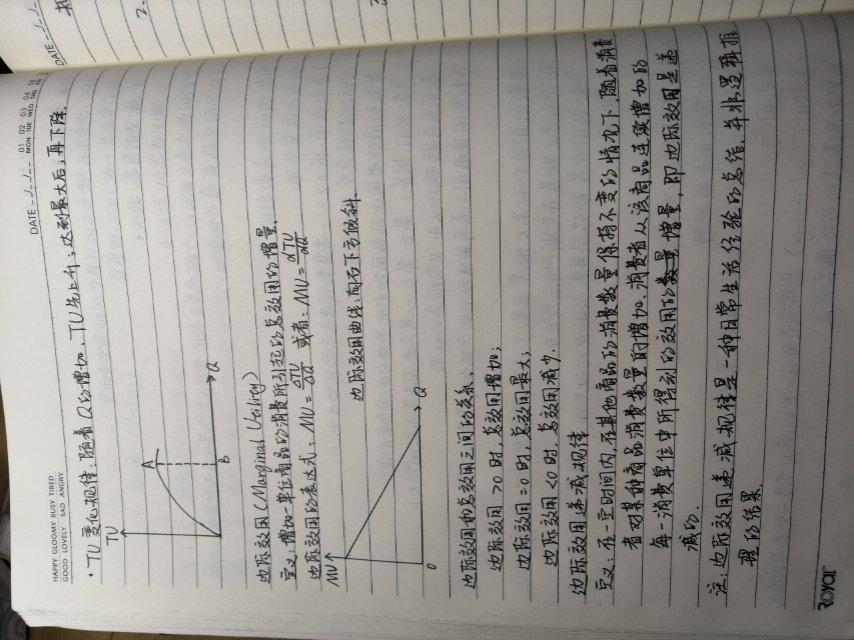 DATE
HAPPY GLOOMY BUSY TIRED
GOOD LOVELY SAD ANGRY
DATE _._/_._/_._
01 02 03 04 05
MON TUE WED THU FRI
·TU变化规律:随着Q的增加,TU先上升;达到最大后;再下降.
TU
A
B
Q
边际效用(Marginal Utility)
定义:增加一单位商品的消费所引起的总效用的增量.
边际效用的表达式:MU=△TU/△Q 或者:MU=dTU/dQ
MU
边际效用曲线:向右下方倾斜.
0
Q
边际效用和总效用之间的关系.
边际效用 >0时,总效用增加;
边际效用=0时,总效用最大;
边际效用<0时,总效用减少.
边际效用递减规律
定义:在一定时间内,在其他商品的消费数量保持不变的情况下,随着消费
者对某种商品消费数量的增加,消费者从该商品连续增加的
每一消费单位中所得到的效用的数量增量,即边际效用是递
减的.
注:边际效用递减规律是一种日常生活经验的总结,并非逻辑推
理的结果.
ROYAL